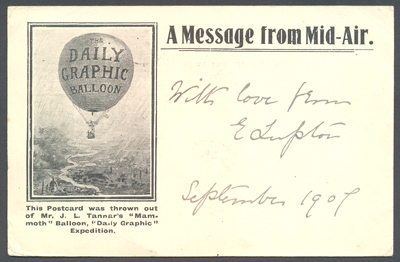 A Message from Mid-Air.
THE
DAILY
GRAPHIC
BALLOON
With love from
E Lupton
September 1907
This Postcard was thrown out
of Mr. J. L. Tannar's "Mam-
moth" Balloon, "Daily Graphic"
Expedition.